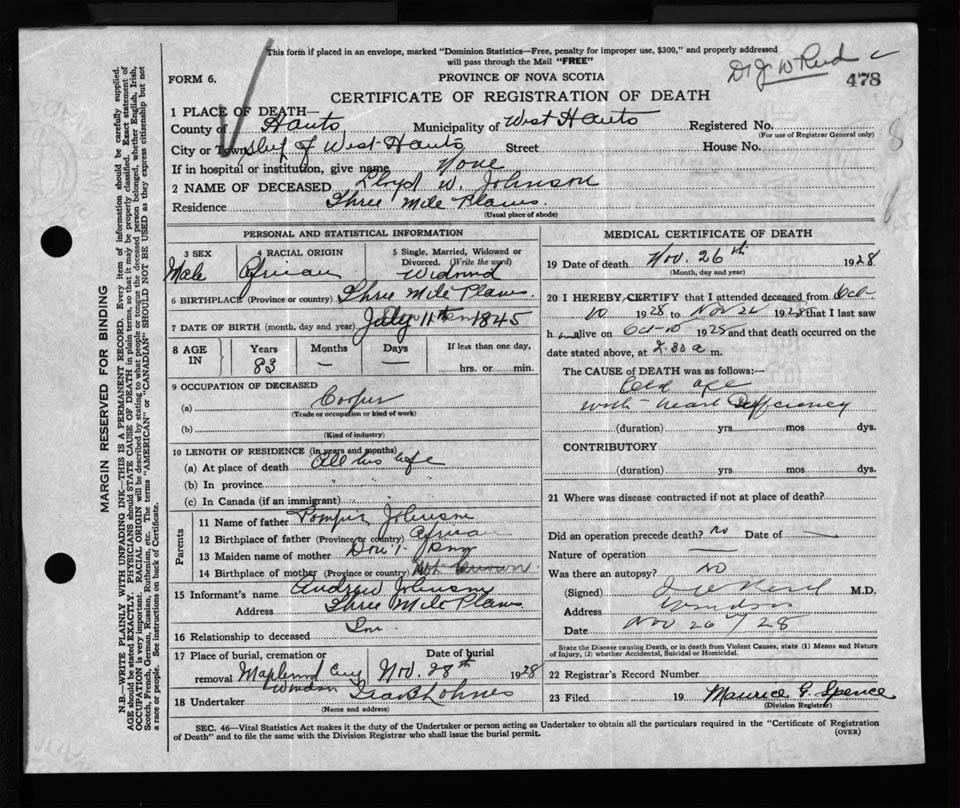 This form if placed in an envelope, marked "Dominion Statistics—Free, penalty for improper use, $300," and properly addressed
will pass through the Mail "FREE"
Dr J W Reid
FORM 6.
PROVINCE OF NOVA SCOTIA
478
CERTIFICATE OF REGISTRATION OF DEATH
1 PLACE OF DEATH—
County of Hants Municipality of West Hants Registered No.
(For use of Registrar General only)
City or Town of West Hants Street House No.
If in hospital or institution, give name None
2 NAME OF DECEASED Lloyd W. Johnson
Residence Three Mile Plains.
(Usual place of abode)
PERSONAL AND STATISTICAL INFORMATION
3 SEX 4 RACIAL ORIGIN 5 Single, Married, Widowed or
Divorced. (Write the word)
Male African Widowed
6 BIRTHPLACE (Province or country) Three Mile Plains.
7 DATE OF BIRTH (month, day and year) July 11th 1845
8 AGE IN Years Months Days If less than one day,
83 – – hrs. or min.
9 OCCUPATION OF DECEASED
(a) Cooper
(Trade or occupation or kind of work)
(b)
(Kind of industry)
10 LENGTH OF RESIDENCE (in years and months)
(a) At place of death All his life
(b) In province " " "
(c) In Canada (if an immigrant)
Parents
11 Name of father Johnson
12 Birthplace of father (Province or country) African
13 Maiden name of mother Don't
14 Birthplace of mother (Province or country) Not known
15 Informant's name Andrew Johnson
Address Three Mile Plains
16 Relationship to deceased Son
17 Place of burial, cremation or Date of burial
removal Maplewood Cem Nov. 28th 1928
Windsor
18 Undertaker
(Name and address)
MEDICAL CERTIFICATE OF DEATH
19 Date of death Nov. 26th 1928
(Month, day and year)
20 I HEREBY CERTIFY that I attended deceased from Oct-
10 1928 to Nov 26 1928 that I last saw
h alive on Oct-10 1928 and that death occurred on the
date stated above, at 2.30 a m.
The CAUSE of DEATH was as follows:
Old age
with heart Deficiency
(duration) yrs mos dys.
CONTRIBUTORY
(duration) yrs mos dys.
21 Where was disease contracted if not at place of death?
Did an operation precede death? No Date of —
Nature of operation —
Was there an autopsy? NO
(Signed) J W Reid M.D.
Address Windsor
Date Nov 26/28
State the Disease causing Death, or in death from Violent Causes, state (1) Means and Nature
of Injury, (2) whether Accidental, Suicidal or Homicidal.
22 Registrar's Record Number
23 Filed 19 Maurice G. Spence
(Division Registrar)
SEC. 46—Vital Statistics Act makes it the duty of the Undertaker or person acting as Undertaker to obtain all the particulars required in the "Certificate of Registration
of Death" and to file the same with the Division Registrar who shall issue the burial permit.
(OVER)
MARGIN RESERVED FOR BINDING
N.B.—WRITE PLAINLY WITH UNFADING INK—THIS IS A PERMANENT RECORD. Every item of information should be carefully supplied.
AGE should be stated EXACTLY. PHYSICIANS should STATE CAUSE OF DEATH in plain terms, so that it may be properly classified. Exact statement of
OCCUPATION is very important. RACIAL ORIGIN will be described by stating to what people or tongue the deceased person belonged, whether English, Irish,
Scotch, French, German, Russian, Ruthenian, etc. The terms "AMERICAN" or "CANADIAN" SHOULD NOT BE USED as they express citizenship but not
a race or people. See instructions on back of Certificate.